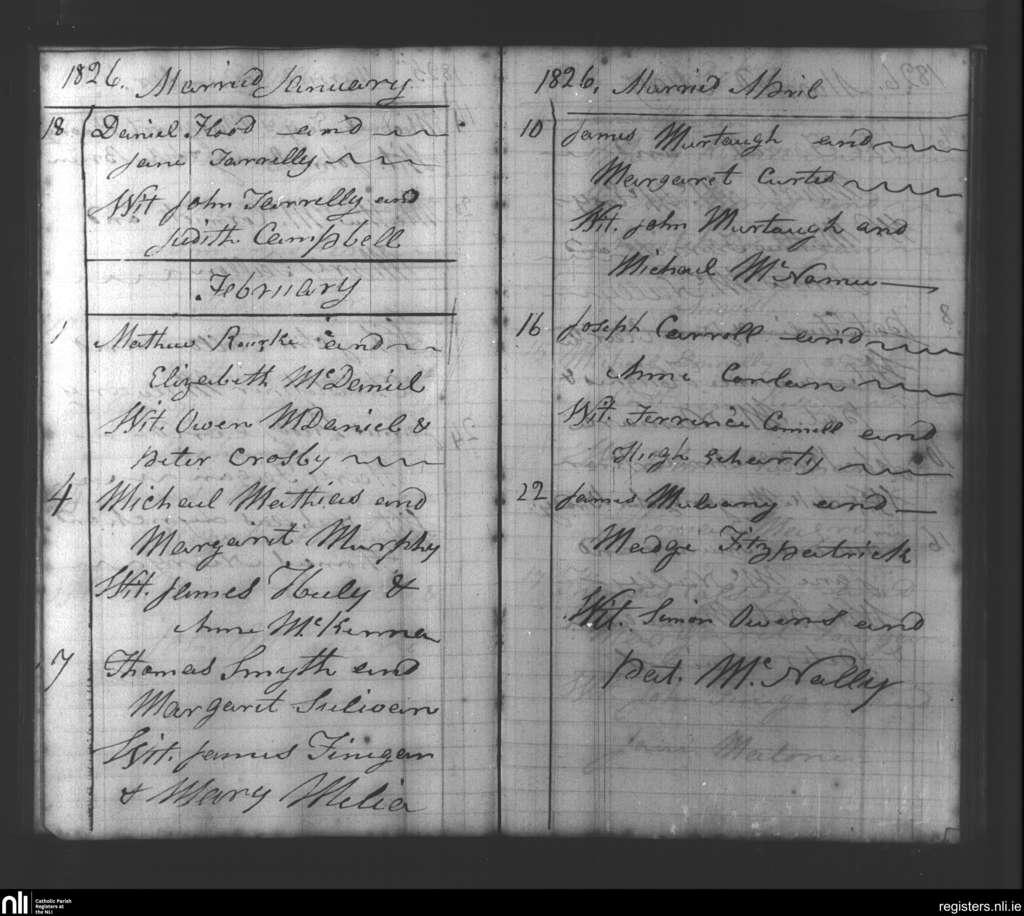 1826. Married January
18 Daniel Flood and
Jane Farrelly
Wit John Farrelly and
Judith Campbell
February
1 Mathew Rourke and
Elizabeth McDaniel
Wit. Owen McDaniel &
Peter Crosby
4 Michael Mathias and
Margaret Murphy
Wit. James Heely &
Anne McKenna
7 Thomas Smyth and
Margaret Sulivan
Wit. James Finegan
& Mary Melia
1826. Married April
10 James Murtaugh and
Margaret Curtis
Wit. John Murtaugh and
Michael McNamee
16 Joseph Carroll and
Anne Conlan
Wit. Terrence Connell and
Hugh
22 James Mulvany and
Madge Fitzpatrick
Wit. Simon Owens and
Pat. McNally
nli Catholic Parish
Registers at
the NLI
registers.nli.ie